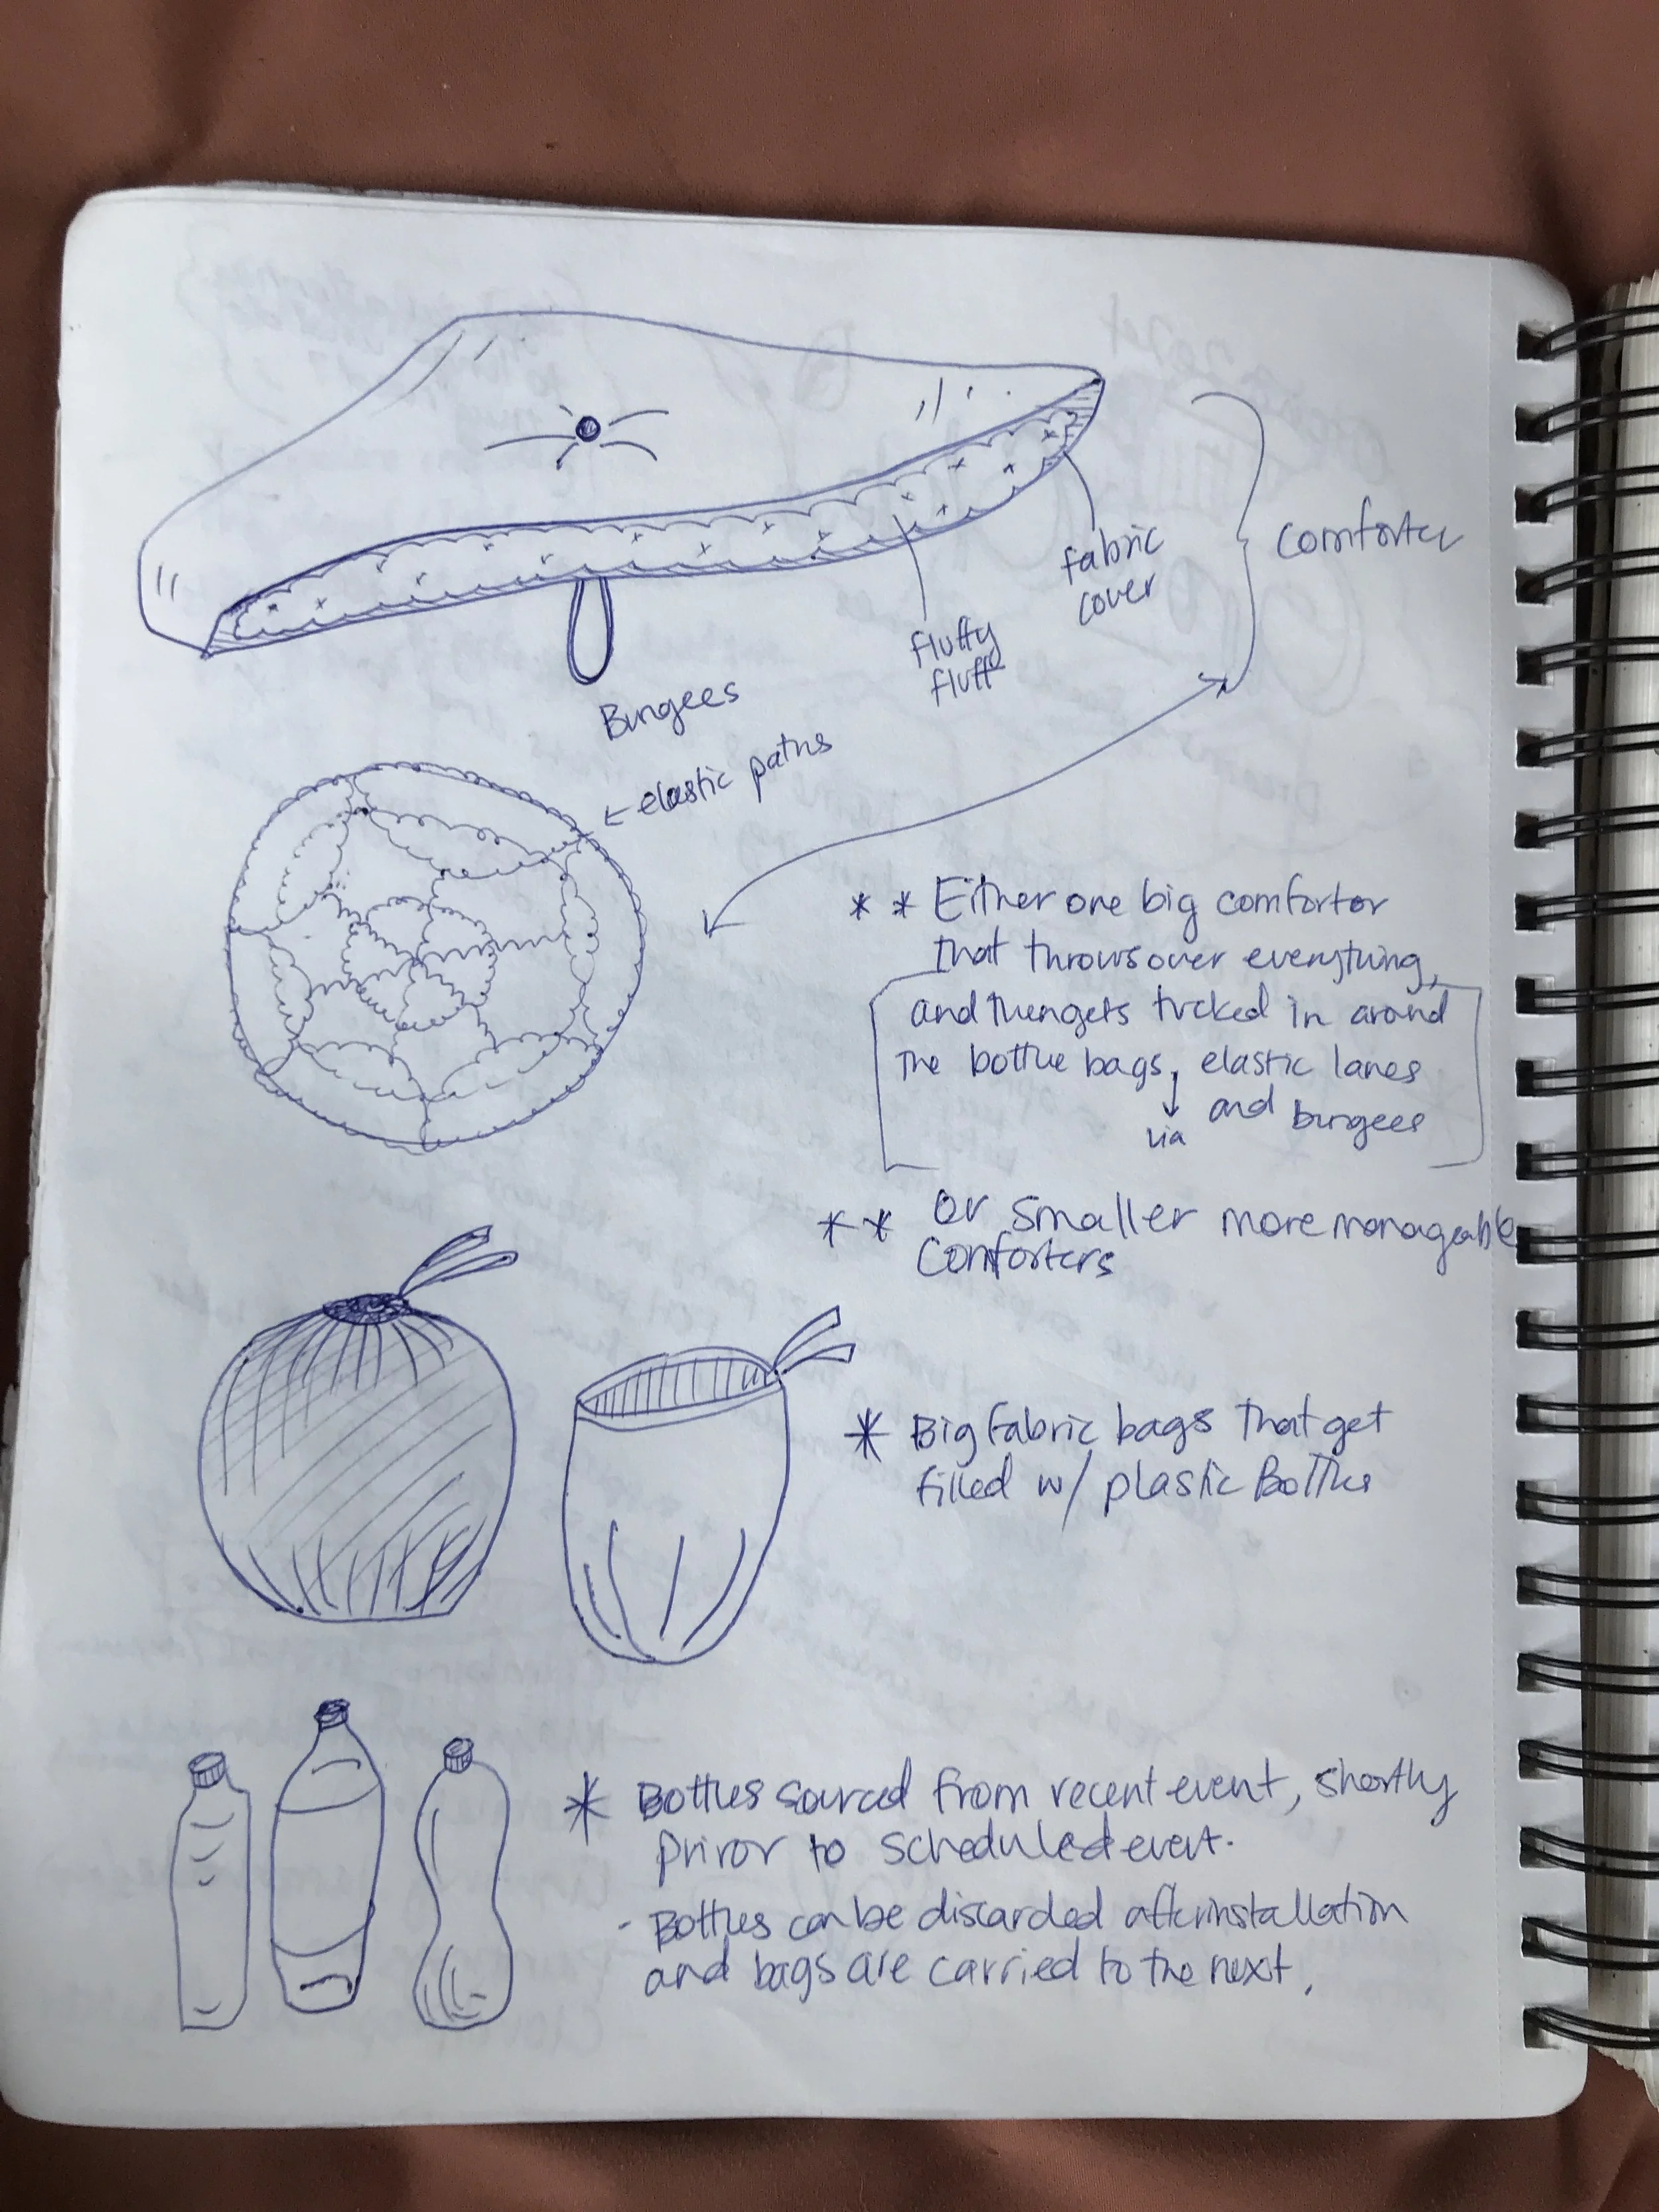 fabric
cover
comforter
fluffy
fluff
Bungees
← elastic paths
* * Either one big comfortor
that throws over everything,
and then gets tucked in around
the bottle bags, elastic lanes
via
and bungees
* * or smaller more manageable
Comforters
* Big fabric bags that get
filled w/ plastic Bottles
* Bottles sourced from recent event, shortly
prior to scheduled event.
- Bottles can be discarded after installation
and bags are carried to the next.